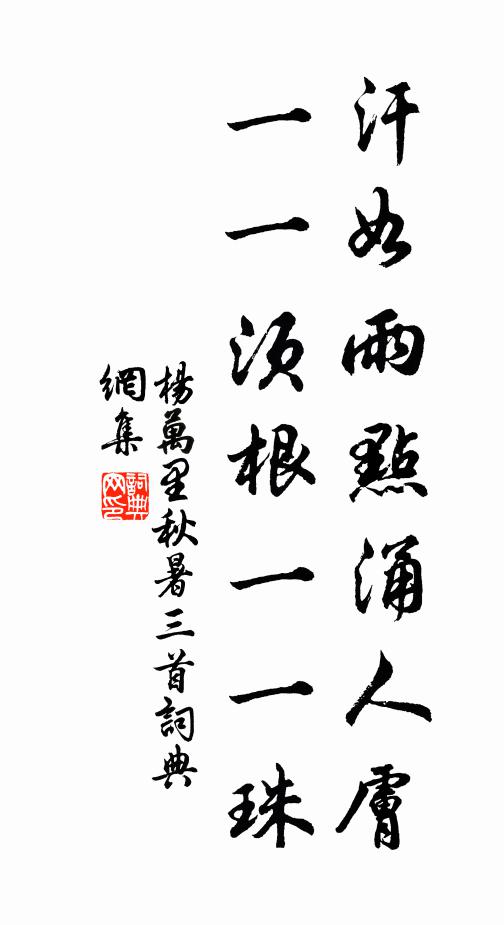 汗如雨點涌人膚
一一須根一一珠
楊萬里秋暑三首詞典
網集
詞典
网印